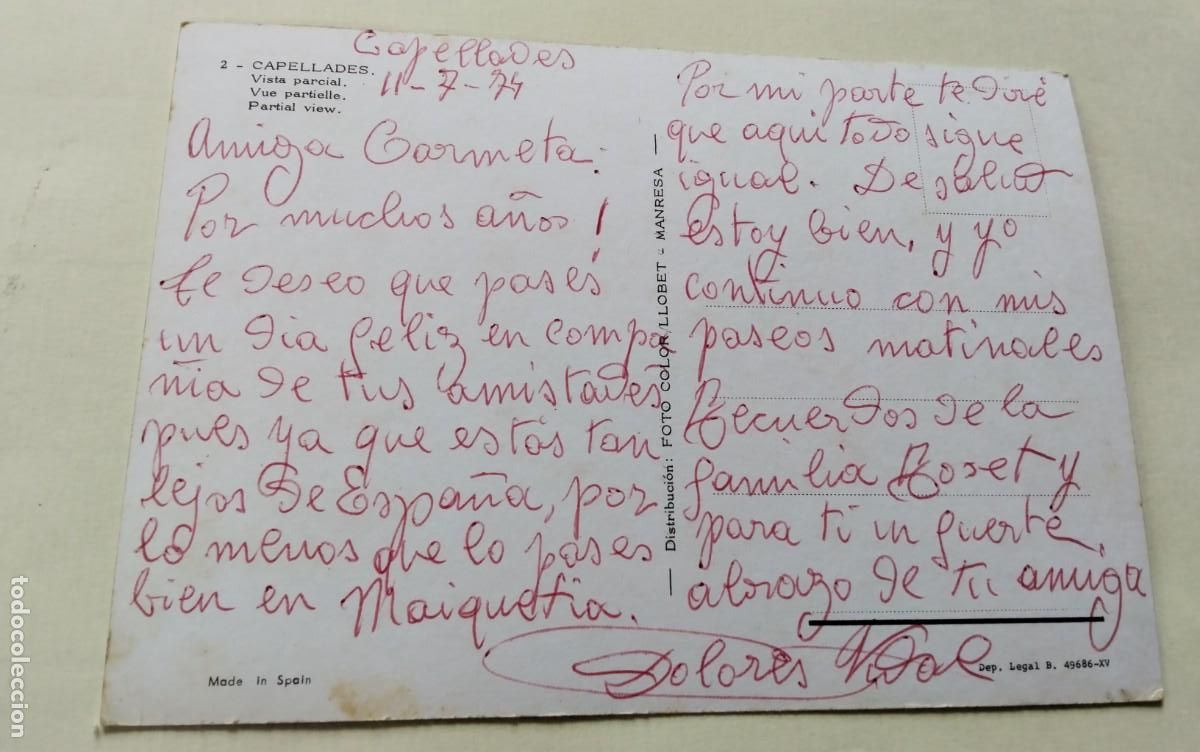 Capellades
11-7-74
2 - CAPELLADES.
Vista parcial.
Vue partielle.
Partial view.
Amiga Carmeta:
Por muchos años!
te deseo que pases
un dia feliz en compa
ñia de tus amistades
pues ya que estás tan
lejos de España, por
lo menos que lo pases
bien en Maiquetia.
Made in Spain
Distribución: FOTO COLOR LLOBET - MANRESA
Por mi parte te diré
que aqui todo sigue
igual. De salud
estoy bien, y yo
continuo con mis
paseos matinales
Recuerdos de la
familia Roset y
para ti un fuerte
abrazo de tu amiga
Dolores Vidal
Dep. Legal B. 49686-XV
todocoleccion